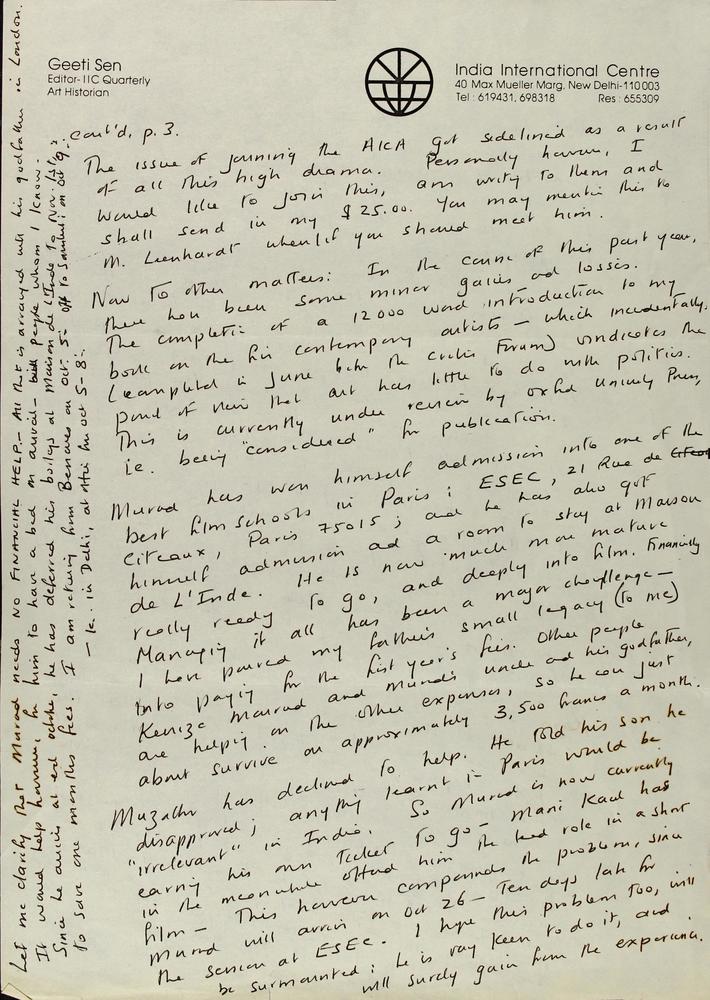 Geeti Sen
Editor-IIC Quarterly
Art Historian
India International Centre
40 Max Mueller Marg, New Delhi-110 003
Tel : 619431, 698318 Res : 655309
cont'd, p. 3.
The issue of joining the AICA got sidelined as a result
of all this high drama. Personally however, I
would like to join this, am writing to them and
shall send in my $25.00. You may mention this to
M. Leenhardt when/if you should meet him.
Now to other matters: In the course of this past year,
there have been some minor gains and losses.
The completion of a 12000 word introduction to my
book on the five contemporary artists — which incidentally,
(completed in June before the Critics Forum) vindicates the
point of view that art has little to do with politics.
This is currently under review by Oxford University Press,
i.e. being "considered" for publication.
Murad has won himself admission into one of the
best film schools in Paris : ESEC, 21 Rue de
Citeaux, Paris 75015 ; and he has also got
himself admission and a room to stay at Maison
de L'Inde. He is now much more mature
really ready to go, and deeply into film. Financially
Managing it all has been a major challenge —
I have poured my father's small legacy (to me)
into paying for the first year's fees. Other people
Kenize Mourad and Murad's uncle and his godfather,
are helping on the other expenses, so he can just
about survive on approximately 3,500 francs a month.
Muzaffar has declined to help. He told his son he
disapproved ; anything learnt in Paris would be
"irrelevant" in India. So Murad is now currently
earning his own ticket to go — Mani Kaul has
in the meanwhile offered him the lead role in a short
film — This however compounds the problem, since
Murad will arrive on Oct 26 — Ten days late for
the session at ESEC. I hope this problem too, will
be surmounted ; he is very keen to do it, and
will surely gain from the experience.
Let me clarify that Murad needs NO FINANCIAL HELP. — All that is arranged with his godfather in London.
It would help however, for him to have a bed on arrival — with people whom I know.
Since he arrives at end october, he has deferred his lodgings at Maison de L'Inde to Nov. 1st,
to save one month's fees. I am returning from Benares on Oct. 5 : off to on Oct 9 :
— ie. in Delhi, at office from Oct 5 - 8 :